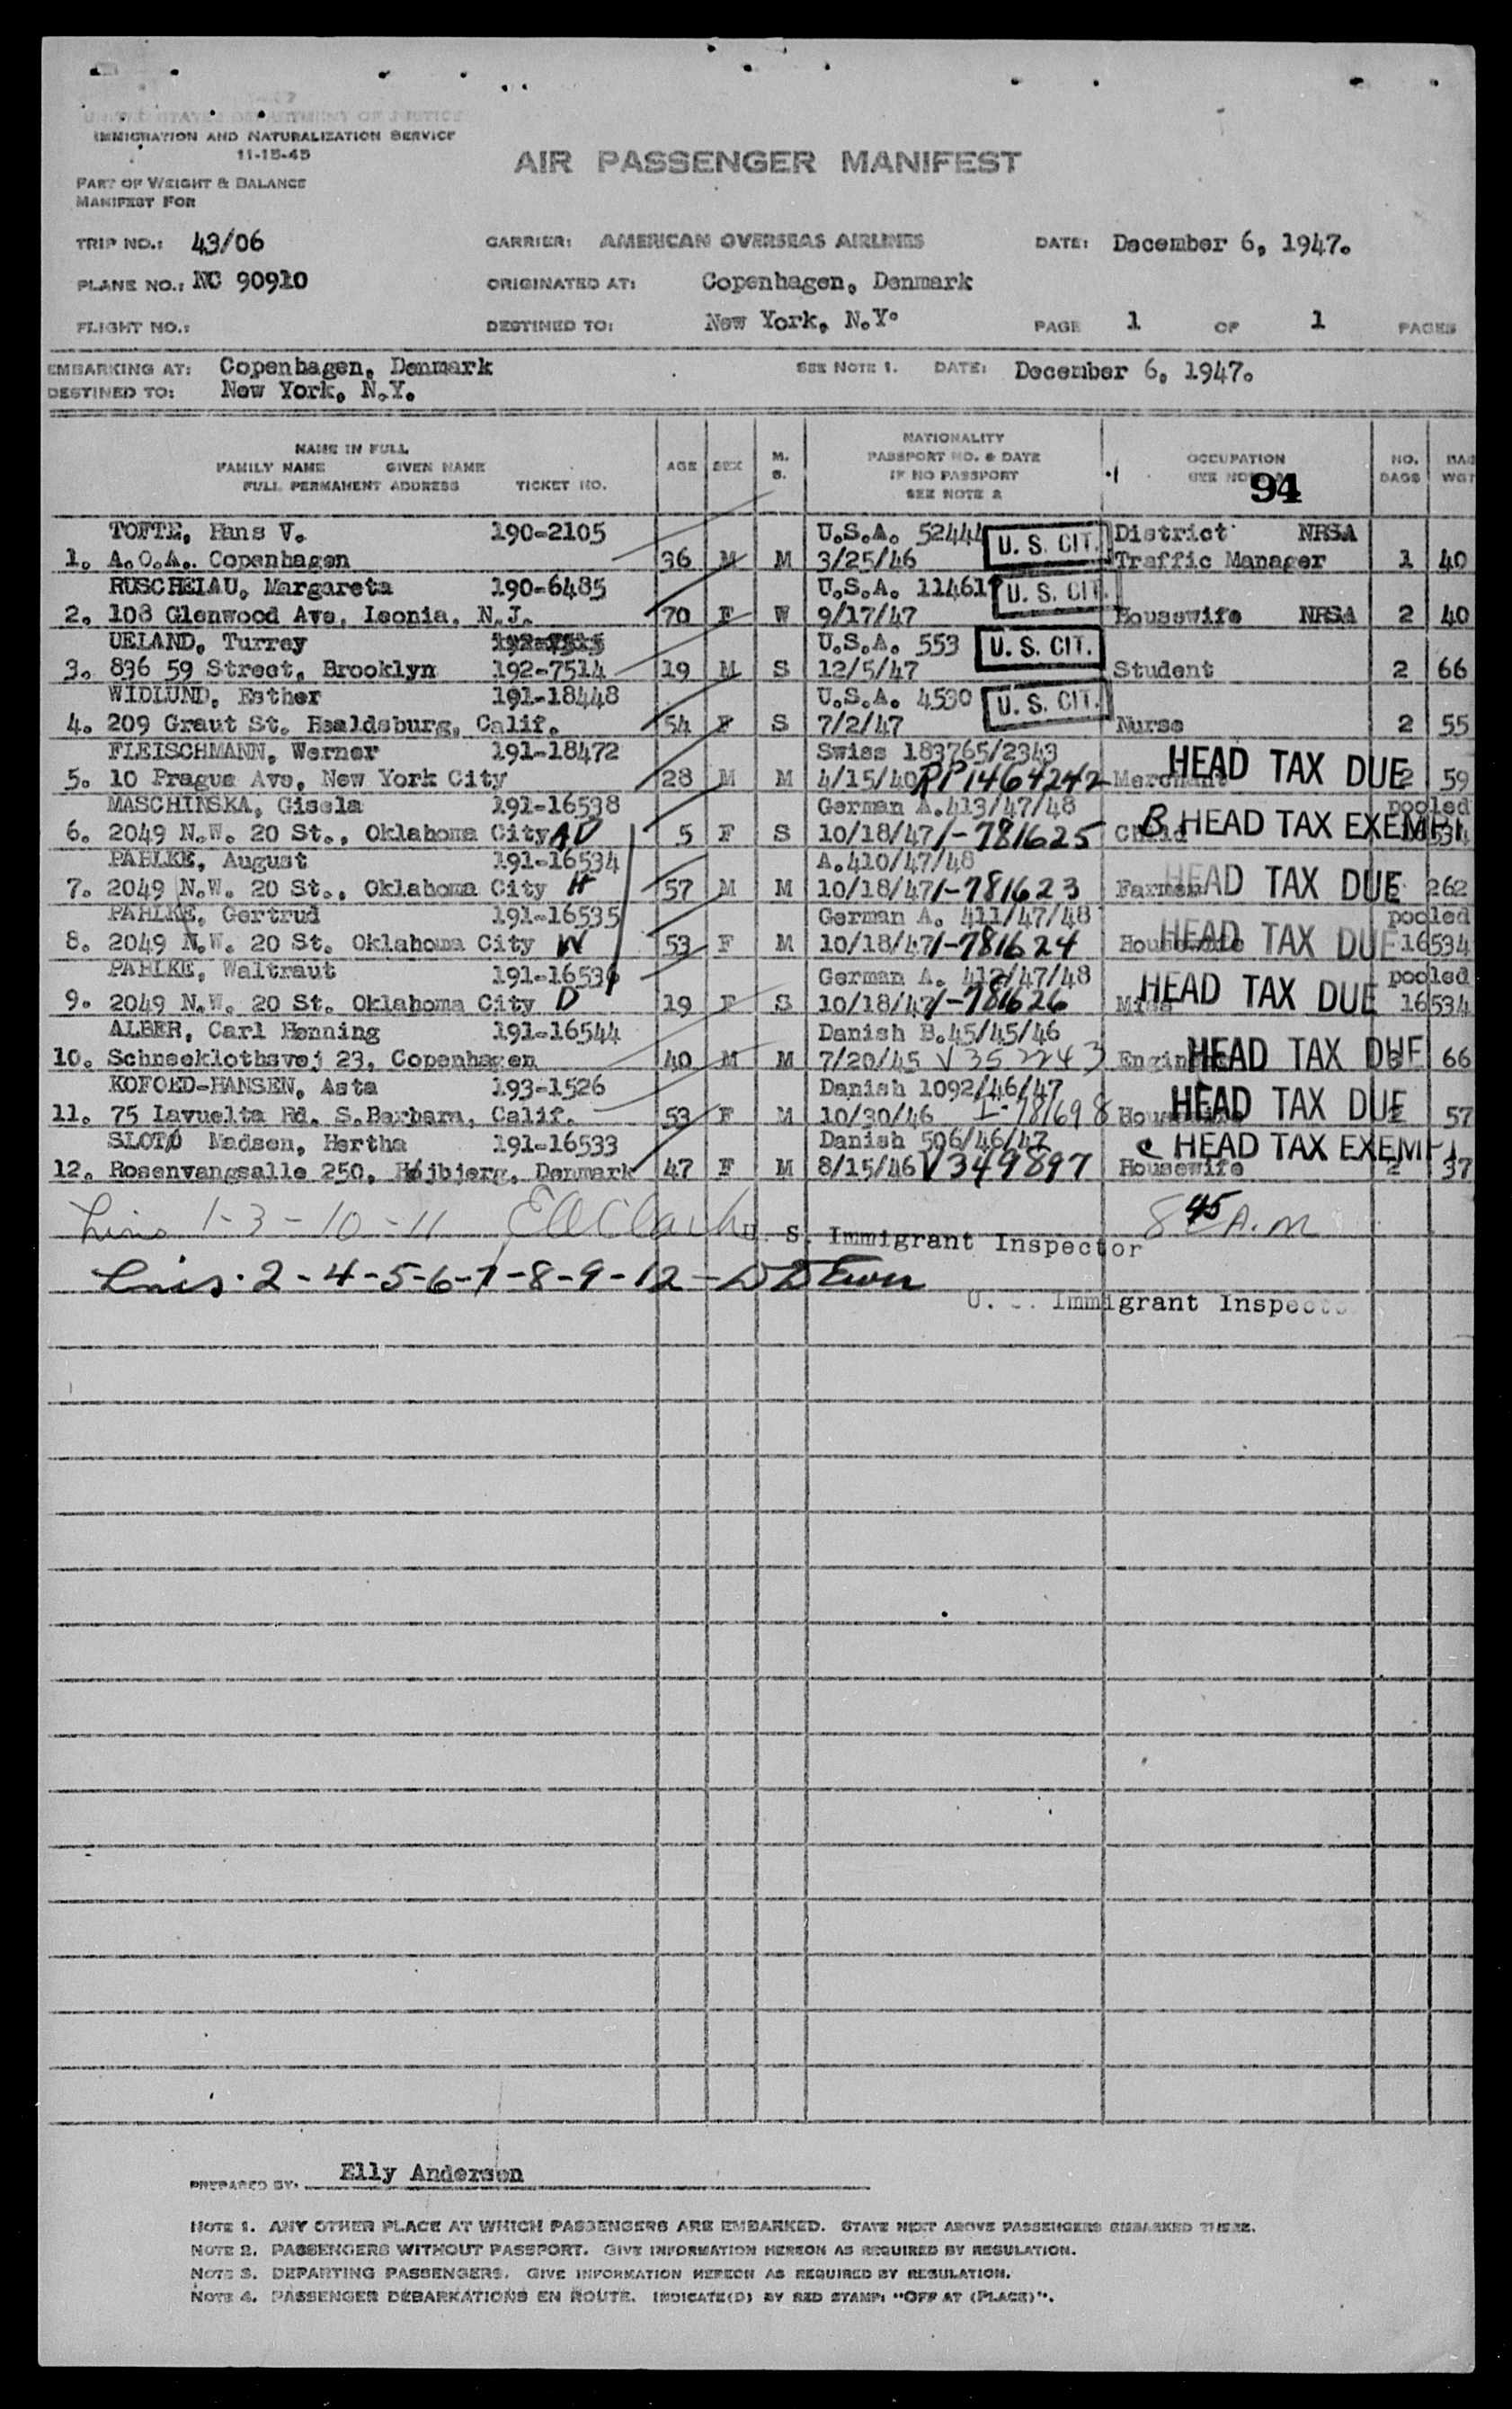 UNITED STATES DEPARTMENT OF JUSTICE
IMMIGRATION AND NATURALIZATION SERVICE
11-15-45
AIR PASSENGER MANIFEST
PART OF WEIGHT & BALANCE
MANIFEST FOR
TRIP NO.: 43/06 CARRIER: AMERICAN OVERSEAS AIRLINES DATE: December 6, 1947.
PLANE NO.: NC 90910 ORIGINATED AT: Copenhagen, Denmark
FLIGHT NO.: DESTINED TO: New York, N.Y. PAGE 1 OF 1 PAGES
EMBARKING AT: Copenhagen, Denmark SEE NOTE 1. DATE: December 6, 1947.
DESTINED TO: New York, N.Y.
NAME IN FULL
FAMILY NAME GIVEN NAME
FULL PERMANENT ADDRESS TICKET NO.
AGE SEX M. S.
NATIONALITY
PASSPORT NO. & DATE
IF NO PASSPORT
SEE NOTE 2
OCCUPATION
SEE NOTE
94
NO. BAGS
BAG WGT
TOFTE, Hans V. 190-2105 U.S.A. 52444 U. S. CIT. District NRSA
1. A.O.A. Copenhagen 36 M M 3/25/46 Traffic Manager 1 40
RUSCHELAU, Margareta 190-6485 U.S.A. 11461 U. S. CIT.
2. 108 Glenwood Ave, Leonia, N.J. 70 F W 9/17/47 Housewife NRSA 2 40
UELAND, Turrey U.S.A. 553 U. S. CIT.
3. 836 59 Street, Brooklyn 192-7514 19 M S 12/5/47 Student 2 66
WIDLUND, Esther 191-18448 U.S.A. 4530 U. S. CIT.
4. 209 Graut St. Healdsburg, Calif. 54 F S 7/2/47 Nurse 2 55
FLEISCHMANN, Werner 191-18472 Swiss 183765/2343 HEAD TAX DUE
5. 10 Prague Ave, New York City 28 M M 4/15/40 RP1464242 Merchant 2 59
MASCHINSKA, Gisela 191-16538 German A.413/47/48 B HEAD TAX EXEMPT pooled
6. 2049 N.W. 20 St., Oklahoma City AD 5 F S 10/18/47 I-781625 Child 16534
PAHLKE, August 191-16534 A.410/47/48 HEAD TAX DUE
7. 2049 N.W. 20 St., Oklahoma City H 57 M M 10/18/47 I-781623 Farmer 262
PAHLKE, Gertrud 191-16535 German A. 411/47/48 HEAD TAX DUE pooled
8. 2049 N.W. 20 St. Oklahoma City W 53 F M 10/18/47 I-781624 Housewife 16534
PAHLKE, Waltraut 191-16536 German A. 412/47/48 HEAD TAX DUE pooled
9. 2049 N.W. 20 St. Oklahoma City D 19 F S 10/18/47 I-781626 Miss 16534
ALBER, Carl Henning 191-16544 Danish B.45/45/46 HEAD TAX DUE
10. Schneeklothsvej 23, Copenhagen 40 M M 7/20/45 V352243 Engineer 66
KOFOED-HANSEN, Asta 193-1526 Danish 1092/46/47 HEAD TAX DUE
11. 75 Lavuelta Rd. S.Barbara, Calif. 53 F M 10/30/46 I-781698 Housewife 2 57
SLOTØ Madsen, Hertha 191-16533 Danish 506/46/47 C HEAD TAX EXEMPT
12. Rosenvangsalle 250, Højbjerg, Denmark 47 F M 8/15/46 V349897 Housewife 2 37
Lins 1-3-10-11 U. S. Immigrant Inspector 8 45 A.M
Lins. 2-4-5-6-7-8-9-12-
U. S. Immigrant Inspector
PREPARED BY: Elly Andersen
NOTE 1. ANY OTHER PLACE AT WHICH PASSENGERS ARE EMBARKED. STATE NEXT ABOVE PASSENGERS EMBARKED THERE.
NOTE 2. PASSENGERS WITHOUT PASSPORT. GIVE INFORMATION HEREON AS REQUIRED BY REGULATION.
NOTE 3. DEPARTING PASSENGERS. GIVE INFORMATION HEREON AS REQUIRED BY REGULATION.
NOTE 4. PASSENGER DEBARKATIONS EN ROUTE. INDICATE(D) BY RED STAMP: "OFF AT (PLACE)".